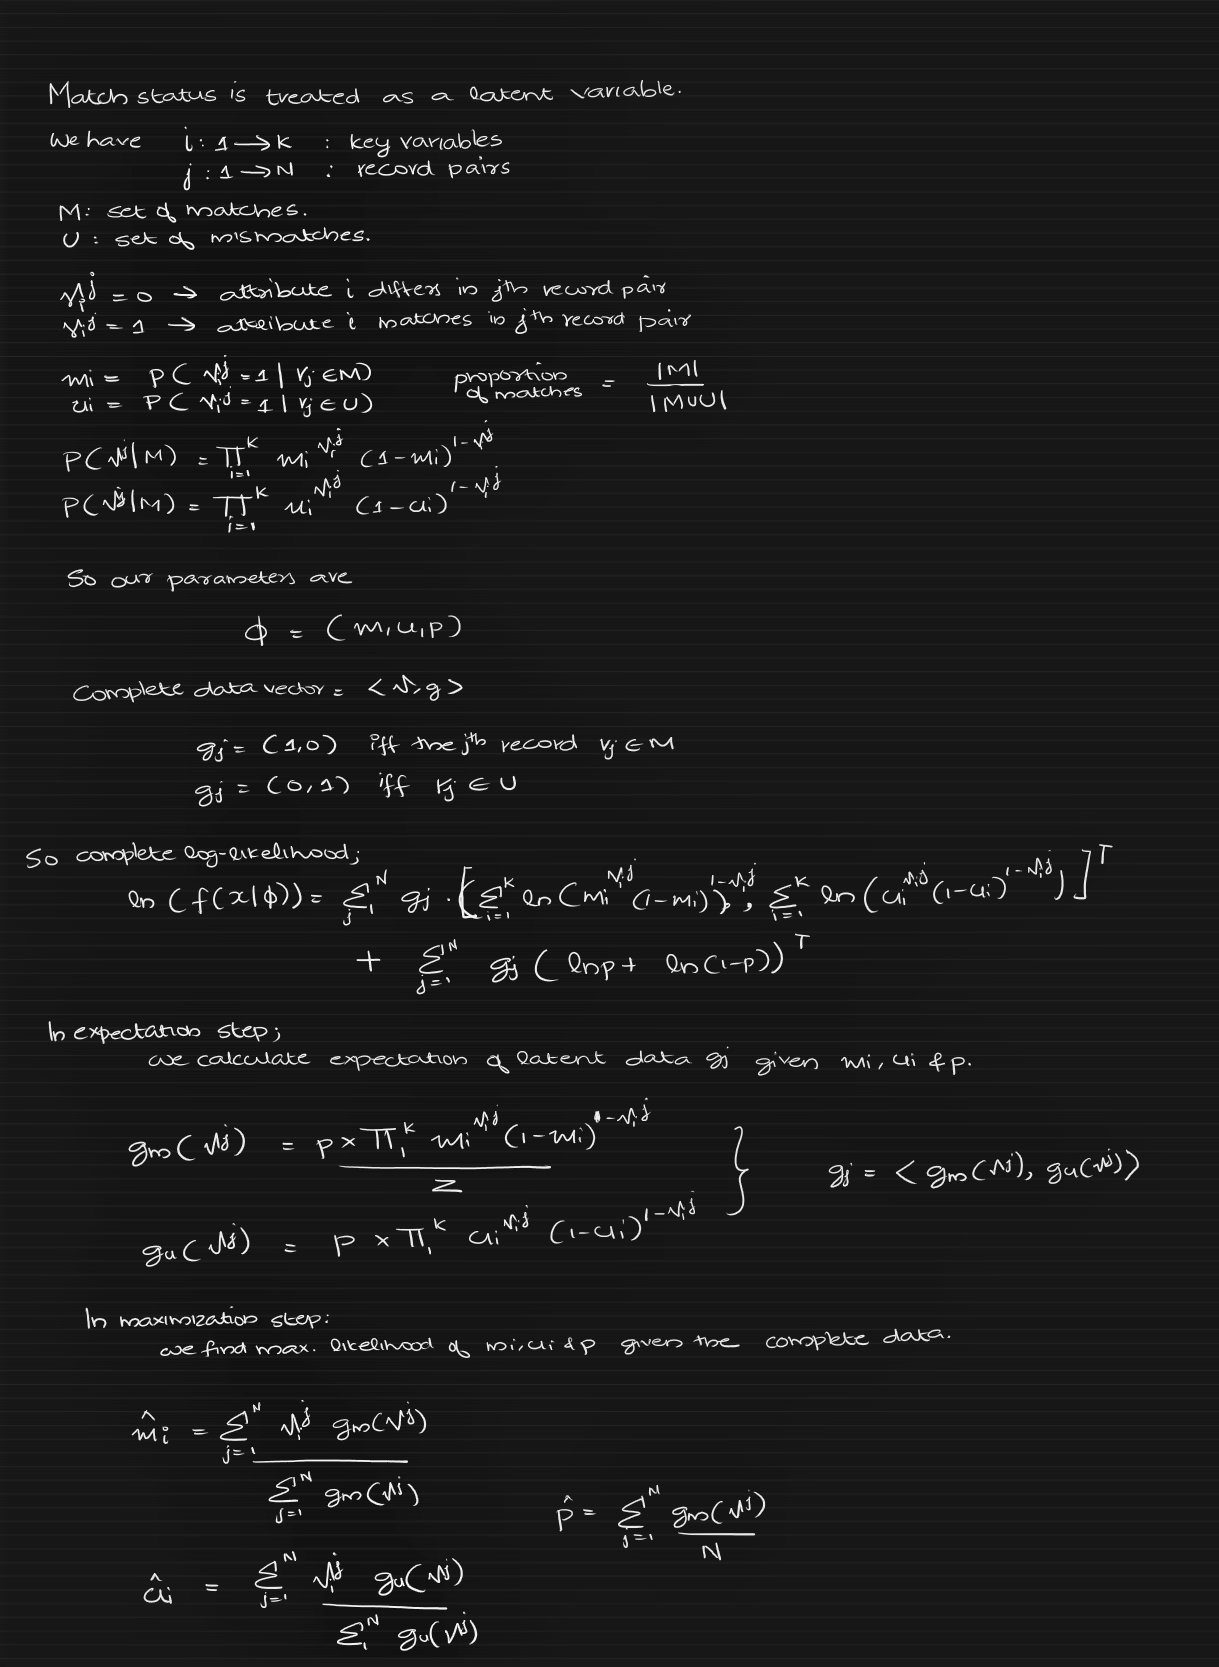 Match status is treated as a latent variable.
We have i : 1 → K : key variables
j : 1 → N : record pairs
M : set of matches.
U : set of mismatches.
γᵢʲ = 0 → attribute i differs in jth record pair
γᵢʲ = 1 → attribute i matches in jth record pair
mi = P( γᵢʲ = 1 | rj ∈ M) proportion of matches = |M| / |M∪U|
ui = P( γᵢʲ = 1 | rj ∈ U)
P(γʲ|M) = ∏ᵢ₌₁ᴷ mi^γᵢʲ (1-mi)^1-γᵢʲ
P(γʲ|M) = ∏ᵢ₌₁ᴷ ui^γᵢʲ (1-ui)^1-γᵢʲ
So our parameters are
ϕ = (m,u,p)
Complete data vector = <γ, g>
gj = (1,0) iff the jth record rj ∈ M
gj = (0,1) iff rj ∈ U
So complete log-likelihood;
ln (f(x|ϕ)) = Σⱼ₌₁ᴺ gj · [Σᵢ₌₁ᴷ ln (mi^γᵢʲ (1-mi)^1-γᵢʲ), Σᵢ₌₁ᴷ ln (ui^γᵢʲ (1-ui)^1-γᵢʲ)]ᵀ
+ Σⱼ₌₁ᴺ gj ( lnp + ln(1-p))ᵀ
In expectation step;
we calculate expectation of latent data gj given mi, ui & p.
gm(γʲ) = p × ∏₁ᴷ mi^γᵢʲ (1-mi)^1-γᵢʲ / Z } gj = < gm(γʲ), gu(γʲ)>
gu(γʲ) = p × ∏₁ᴷ ui^γᵢʲ (1-ui)^1-γᵢʲ
In maximization step:
we find max. likelihood of mi, ui & p given the complete data.
m̂i = Σⱼ₌₁ᴺ γᵢʲ gm(γʲ) / Σⱼ₌₁ᴺ gm(γʲ)
p̂ = Σⱼ₌₁ᴺ gm(γʲ) / N
ûi = Σⱼ₌₁ᴺ γᵢʲ gu(γʲ) / Σ₁ᴺ gu(γʲ)